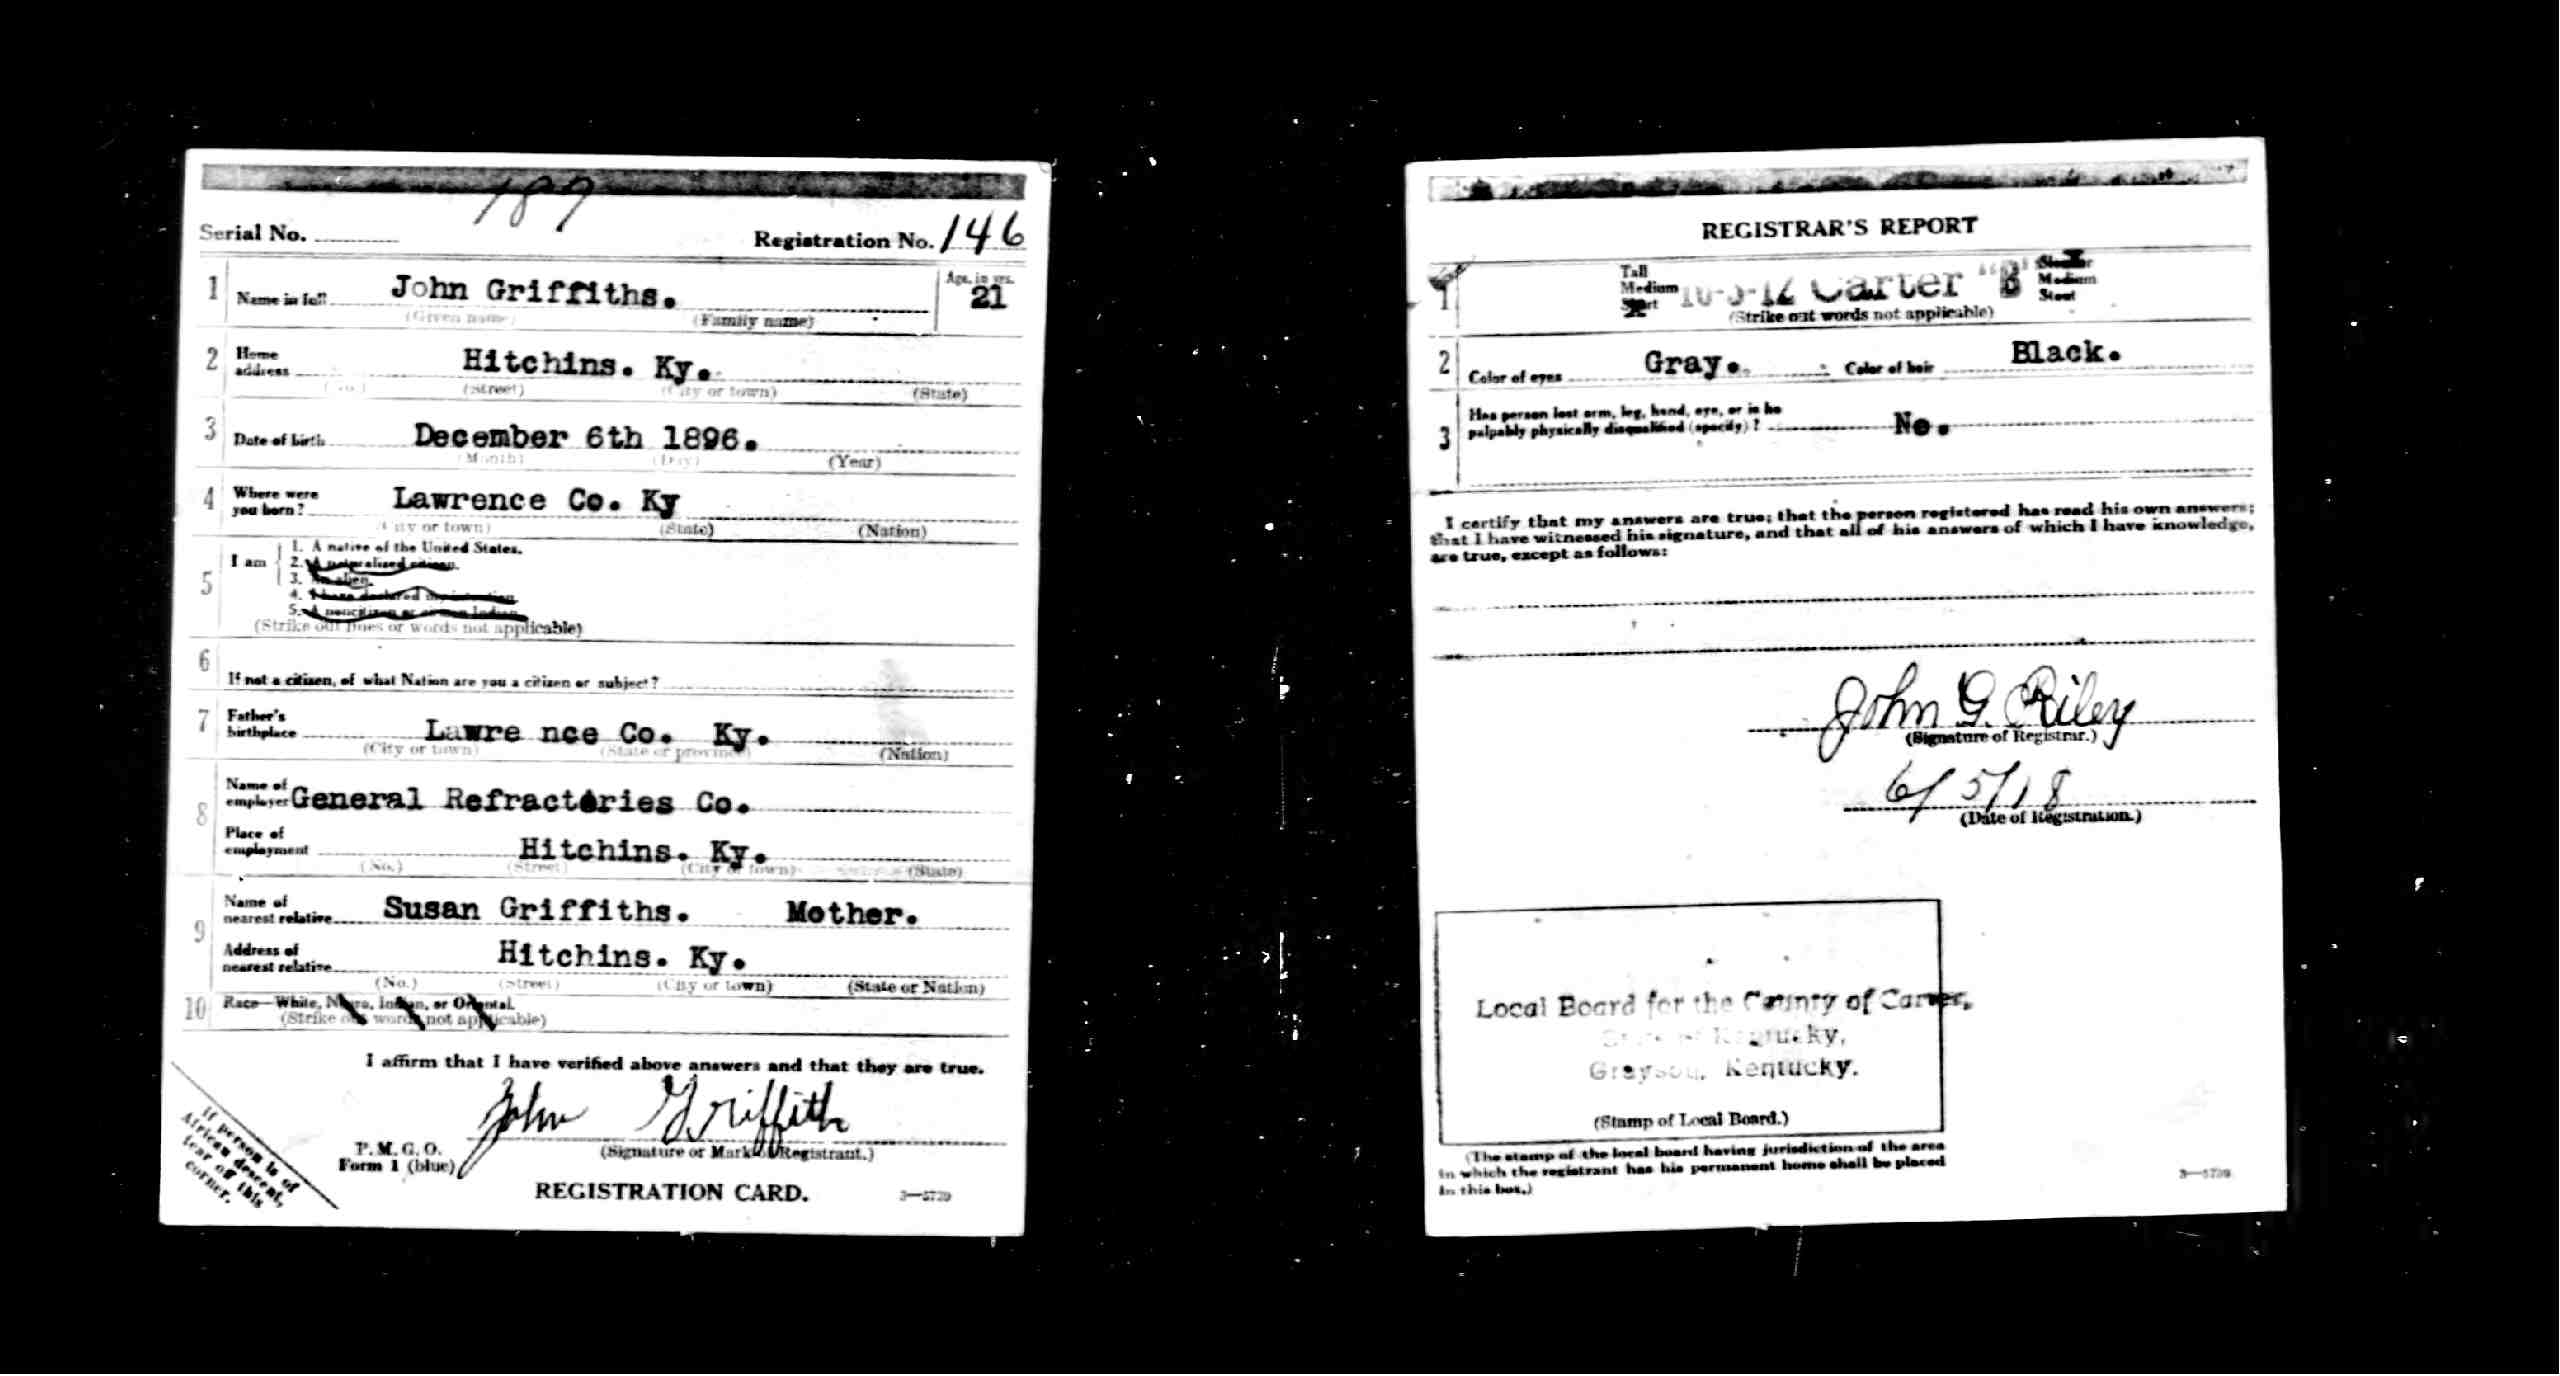 187
Serial No.
Registration No. 146
1 Name in full John Griffiths. Age, in yrs. 21
(Given name) (Family name)
2 Home address Hitchins. Ky.
(No.) (Street) (City or town) (State)
3 Date of birth December 6th 1896.
(Month) (Day) (Year)
4 Where were you born? Lawrence Co. Ky
(City or town) (State) (Nation)
5 I am
1. A native of the United States.
2. A naturalized citizen.
3. An alien.
4. I have declared my intention
5. A noncitizen or citizen Indian
(Strike out lines or words not applicable)
6 If not a citizen, of what Nation are you a citizen or subject?
7 Father's birthplace Lawre nce Co. Ky.
(City or town) (State or province) (Nation)
8 Name of employer General Refractories Co.
Place of employment Hitchins. Ky.
(No.) (Street) (City or town) (State)
9 Name of nearest relative Susan Griffiths. Mother.
Address of nearest relative Hitchins. Ky.
(No.) (Street) (City or town) (State or Nation)
10 Race—White, Negro, Indian, or Oriental.
(Strike out words not applicable)
I affirm that I have verified above answers and that they are true.
John Griffith
(Signature or Mark of Registrant.)
P. M. G. O.
Form 1 (blue)
REGISTRATION CARD.
3—5739
If person is of
African descent,
tear off this
corner.
REGISTRAR'S REPORT
1 Tall Medium Short Carter "B" Slender Medium Stout
(Strike out words not applicable)
2 Color of eyes Gray. Color of hair Black.
3 Has person lost arm, leg, hand, eye, or is he
palpably physically disqualified (specify)? No.
I certify that my answers are true; that the person registered has read his own answers;
that I have witnessed his signature, and that all of his answers of which I have knowledge,
are true, except as follows:
John G. Riley
(Signature of Registrar.)
6/5/18
(Date of Registration.)
Local Board for the County of Carter,
State of Kentucky,
Grayson, Kentucky.
(Stamp of Local Board.)
(The stamp of the local board having jurisdiction of the area
in which the registrant has his permanent home shall be placed
in this box.)
3—5739